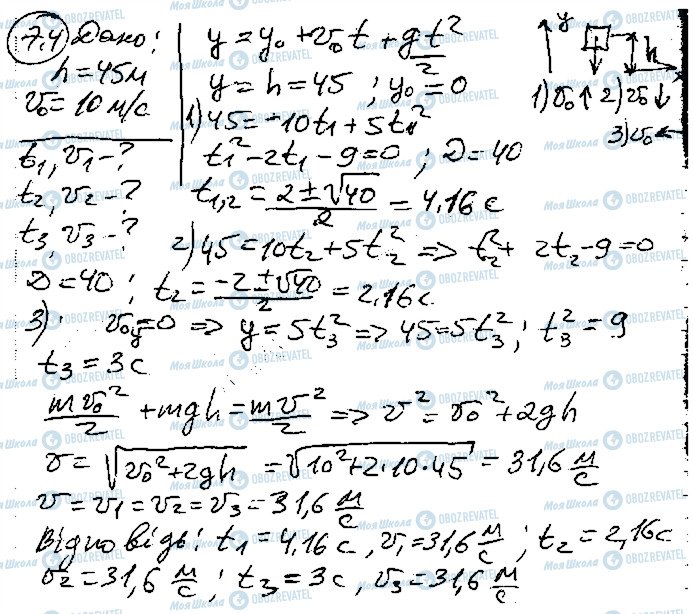 7.4 Дано:
h = 45м
v₀ = 10 м/с
t₁, v₁ - ?
t₂, v₂ - ?
t₃, v₃ - ?
y = y₀ + v₀t + gt²/2
y = h = 45 ; y₀ = 0
1) 45 = -10t₁ + 5t₁²
t₁² - 2t₁ - 9 = 0 ; D = 40
t₁,₂ = (2 ± √40)/2 = 4,16 с
y h
1) v₀ ↑ 2) v₀ ↓
3) v₀ ←
2) 45 = 10t₂ + 5t₂² => t₂² + 2t₂ - 9 = 0
D = 40 ; t₂ = (-2 ± √40)/2 = 2,16с
3) v₀y = 0 => y = 5t₃² => 45 = 5t₃² ; t₃² = 9
t₃ = 3 с
mv₀²/2 + mgh = mv²/2 => v² = v₀² + 2gh
v = √(v₀² + 2gh) = √(10² + 2·10·45) = 31,6 м/с
v = v₁ = v₂ = v₃ = 31,6 м/с
Відповідь: t₁ = 4,16 с, v₁ = 31,6 м/с ; t₂ = 2,16с
v₂ = 31,6 м/с ; t₃ = 3с, v₃ = 31,6 м/с
МояШкола OBOZREVATEL